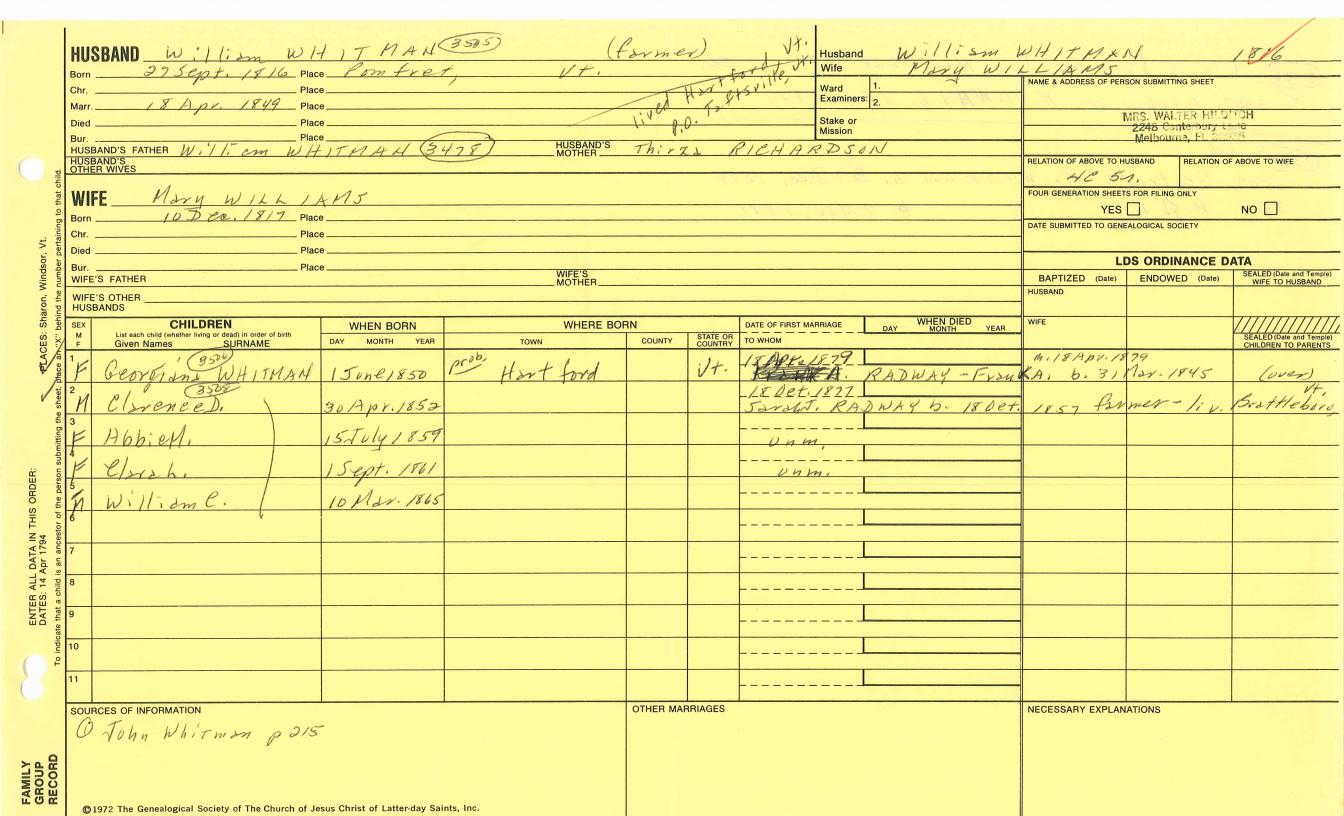 HUSBAND William WHITMAN 3505 (farmer)
Born 27 Sept. 1816 Place Pomfret, Vt.
lived Hartford, Vt.
P.O. Taftsville, Vt.
Chr. Place
Marr. 18 Apr. 1849 Place
Died Place
Bur. Place
HUSBAND'S FATHER William WHITMAN 3478 HUSBAND'S MOTHER Thirza RICHARDSON
HUSBAND'S OTHER WIVES
Husband William WHITMAN 1816
Wife Mary WILLIAMS
Ward Examiners: 1.
2.
Stake or Mission
NAME & ADDRESS OF PERSON SUBMITTING SHEET
MRS. WALTER
2248 Canterbury Lane
Melbourne, FL
RELATION OF ABOVE TO HUSBAND RELATION OF ABOVE TO WIFE
4C 5r.
FOUR GENERATION SHEETS FOR FILING ONLY
YES NO
DATE SUBMITTED TO GENEALOGICAL SOCIETY
WIFE Mary WILLIAMS
Born 10 Dec. 1817 Place
Chr. Place
Died Place
Bur. Place
WIFE'S FATHER WIFE'S MOTHER
WIFE'S OTHER HUSBANDS
LDS ORDINANCE DATA
BAPTIZED (Date) ENDOWED (Date) SEALED (Date and Temple) WIFE TO HUSBAND
HUSBAND
WIFE
SEALED (Date and Temple) CHILDREN TO PARENTS
SEX M F CHILDREN WHEN BORN WHERE BORN DATE OF FIRST MARRIAGE WHEN DIED
List each child (whether living or dead) in order of birth
Given Names SURNAME DAY MONTH YEAR TOWN COUNTY STATE OR COUNTRY TO WHOM DAY MONTH YEAR
1 F Georgiana WHITMAN 1 June 1850 prob. Hartford Vt. 18 Apr. 1879
RADWAY - Frank A. b. 31 Mar. 1845 (over)
m. 18 Apr. 1879
2 M Clarence D. 3508 30 Apr. 1852
Sarah J. RADWAY b. 18 Oct. 1857 farmer - liv. Brattleboro, Vt.
3 F Abbie M. 15 July 1859 unm.
4 F Clara L. 1 Sept. 1861 unm.
5 M William C. 10 Mar. 1865
6
7
8
9
10
11
SOURCES OF INFORMATION OTHER MARRIAGES NECESSARY EXPLANATIONS
① John Whitman p 215
©1972 The Genealogical Society of The Church of Jesus Christ of Latter-day Saints, Inc.
FAMILY GROUP RECORD
ENTER ALL DATA IN THIS ORDER:
DATES: 14 Apr 1794
PLACES: Sharon, Windsor, Vt.
To indicate that a child is an ancestor of the person submitting the sheet, place an "X" behind the number pertaining to that child.